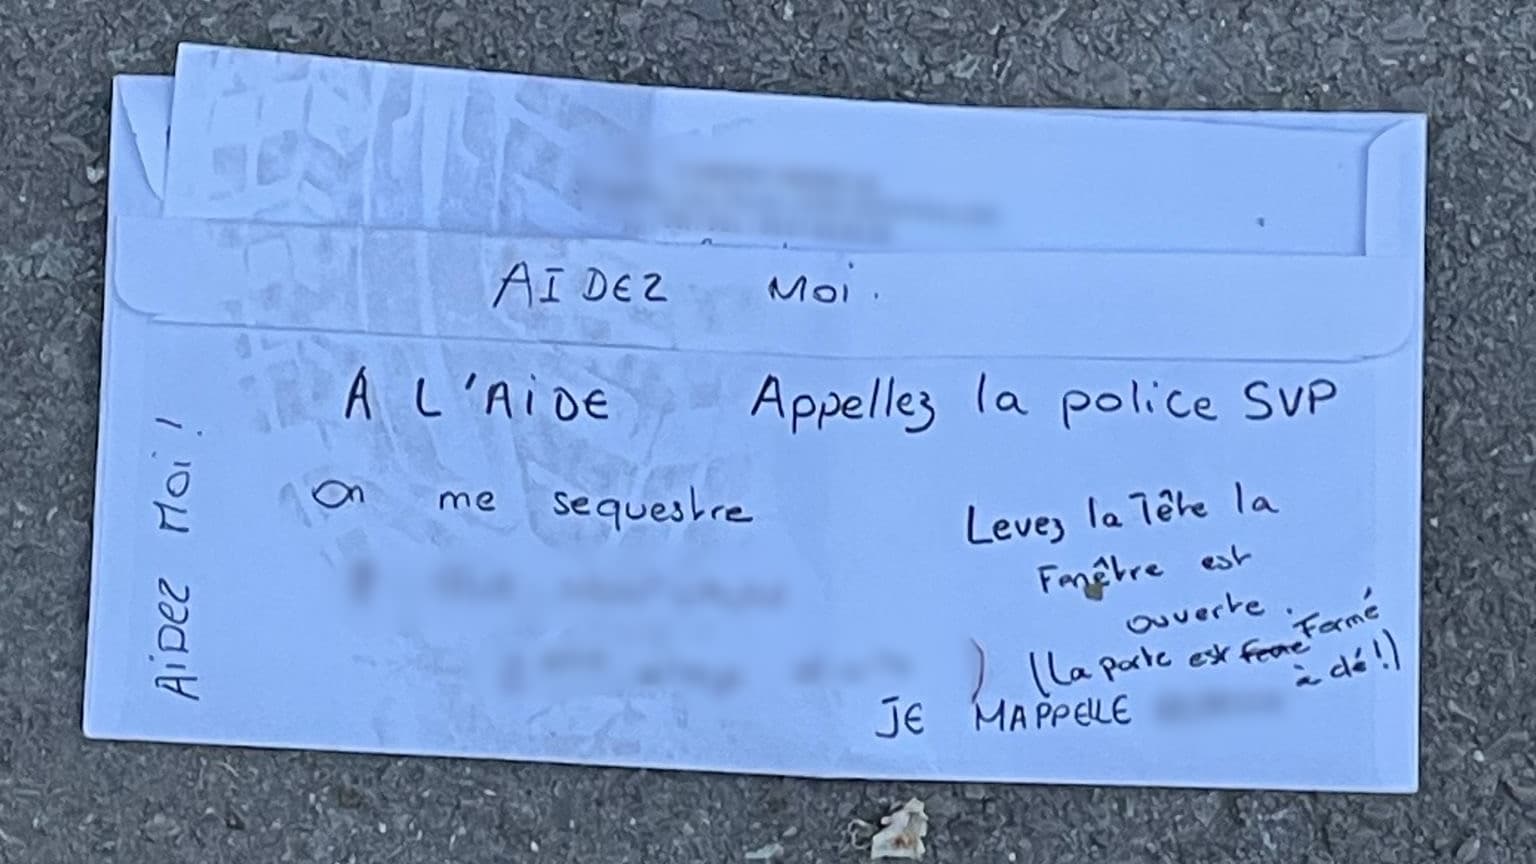 AIDEZ Moi.
A L'AiDE Appellez la police SVP
On me sequestre
Levez la Tête la
Fenêtre est
ouverte.
(La porte est ferme Fermé
à clé!)
JE MAPPELLE
AiDEZ Moi!